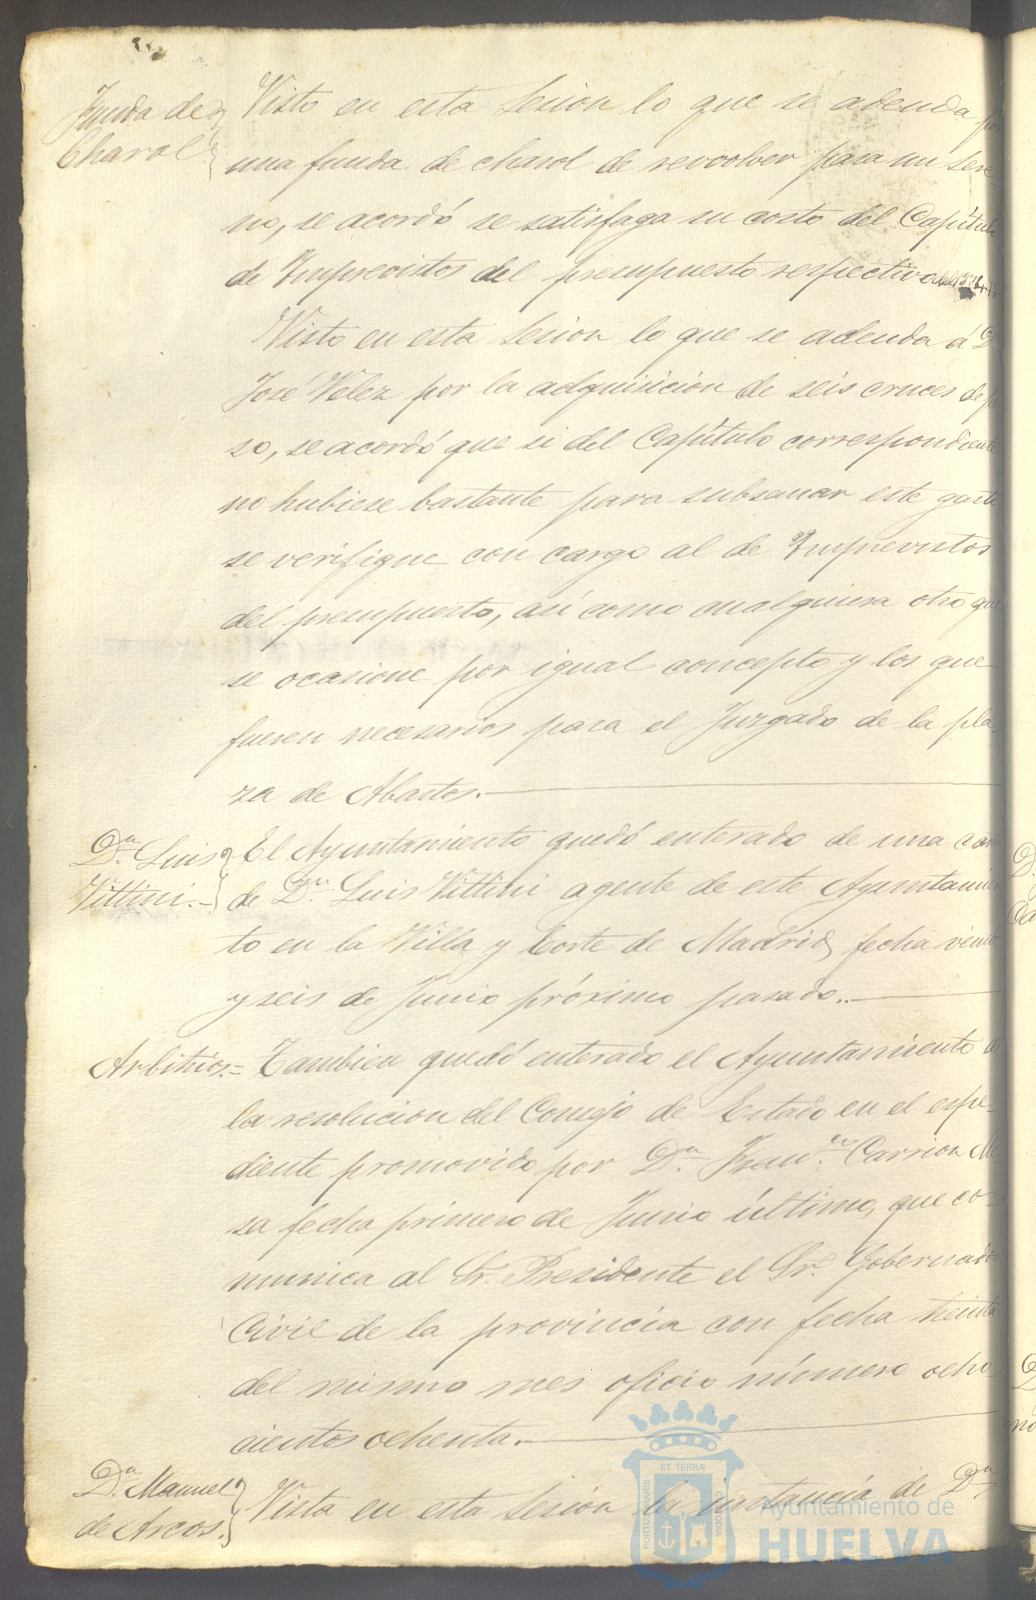 Funda de
Charol
Visto en esta Sesion lo que se adeuda por
una funda de charol de revolver para un Sere-
no, se acordó se satisfaga su costo del Capítulo
de Imprevistos del presupuesto respectivo
Visto en esta Sesion lo que se adeuda á D.
José Velez por la adquisicion de seis cruces de pe
so, se acordó que si del Capítulo correspondiente
no hubiese bastante para subsanar este gasto
se verifique con cargo al de Imprevistos
del presupuesto, así como cualquiera otro que
se ocasione por igual concepto y los que
fuesen necesarios para el Juzgado de la pla
za de Abastos.
Dn. Luis
Vittini.-
El Ayuntamiento quedó enterado de una carta
de Dn. Luis Vittini agente de este Ayuntamien
to en la Villa y Corte de Madrid, fecha veinte
y seis de Junio próximo pasado..
Arbitrios.=
Tambien quedó enterado el Ayuntamiento de
la resolucion del Consejo de Estado en el espe-
diente promovido por Dn. Franco. Carrion Me
sa fecha primero de Junio último, que co-
munica al Sr. Presidente el Sr. Gobernador
Civil de la provincia con fecha treinta
del mismo mes oficio número ocho-
cientos ochenta.
Dn. Manuel
de Arcos.
Vista en esta Sesion la instancia de Dn.
Ayuntamiento de
HUELVA